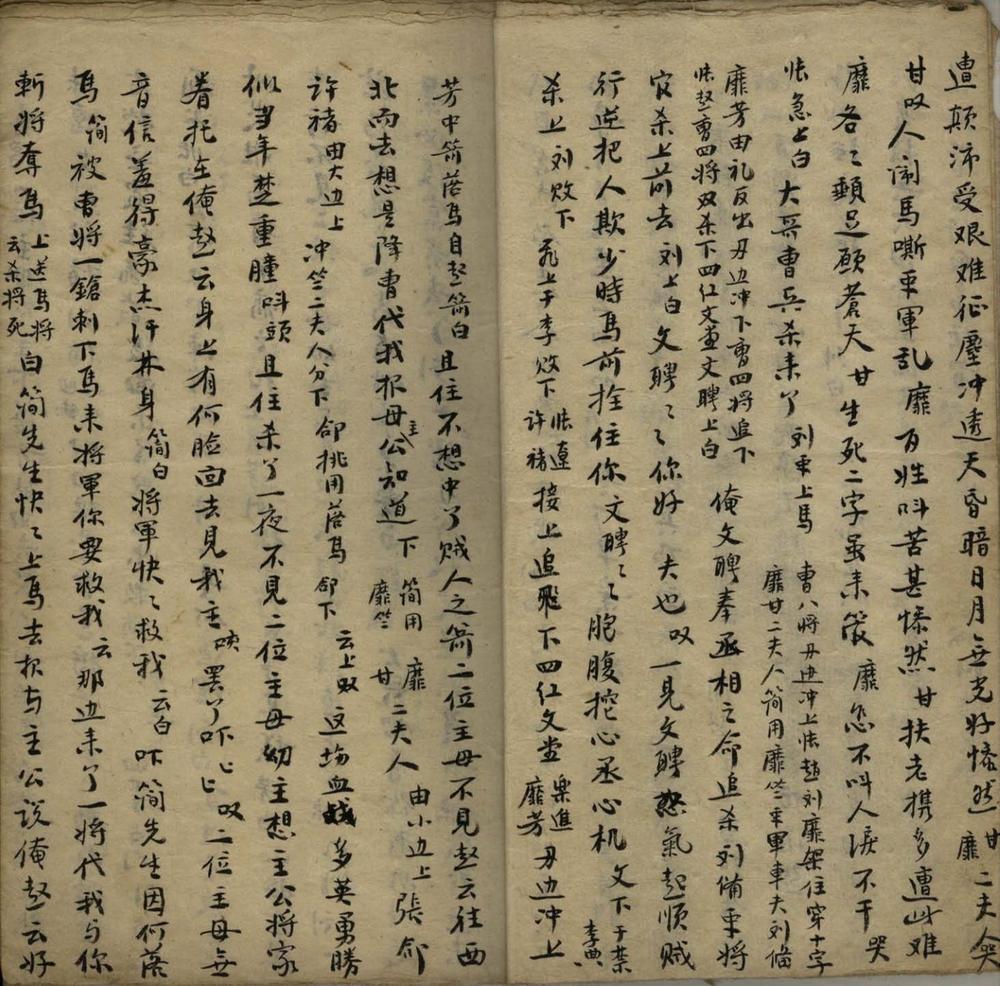 遭颠沛受艰难征塵冲透天昏暗日月無光好惨然 甘靡二夫人哭
甘叹人闹馬嘶車軍乱 靡百姓叫苦甚惨然 甘扶老携多遭此难
靡各々頓足顾蒼天 甘生死二字虽未 靡怎不叫人淚不干 哭
怅急上白大哥曹兵杀来了 刘車上馬 曹八将丹边冲上怅赵刘靡架住穿十字
靡甘二夫人简用靡竺車軍車夫刘俻
靡芳由礼反出丹边冲下曹四将追下
怅赵曹四将双杀下四红文堂文聘上白 俺文聘奉丞相之命追杀刘俻車将
官杀上前去 刘上白文聘々々你好 夫也 叹一見文聘怒氣起順贼
行逆把人欺少時馬前拴住你 文聘々々胞腹挖心丞心机 文下于禁李典
杀上刘败下 飛上于李败下 怅遼许褚接上追飛下四红文堂 樂進靡芳丹边冲上
芳中箭落馬自赵箭白 且住不想中了贼人之箭二位主母不見赵云往西
北而去想是降曹代我报母主公知道 下 简用靡竺 靡甘二夫人 由小边上 張郃
许褚由大边上 冲竺二夫人分下 郃挑用落馬 郃下 云上叹 这场血战多英勇勝
似当年楚重瞳 叫頭 且住杀了一夜不見二位主母幼主想主公将家
眷托在俺赵云身上有何脸回去見我主 罢了吓々々 叹二位主母無
音信羞得豪杰汗林身 简白将軍快々救我 云白吓简先生因何落
馬 简被曹将一鎗刺下馬来将軍你要救我 云那边来了一将代我与你
斬将夺馬 上送馬将云杀将死 白简先生快々上馬去报与主公説俺赵云好